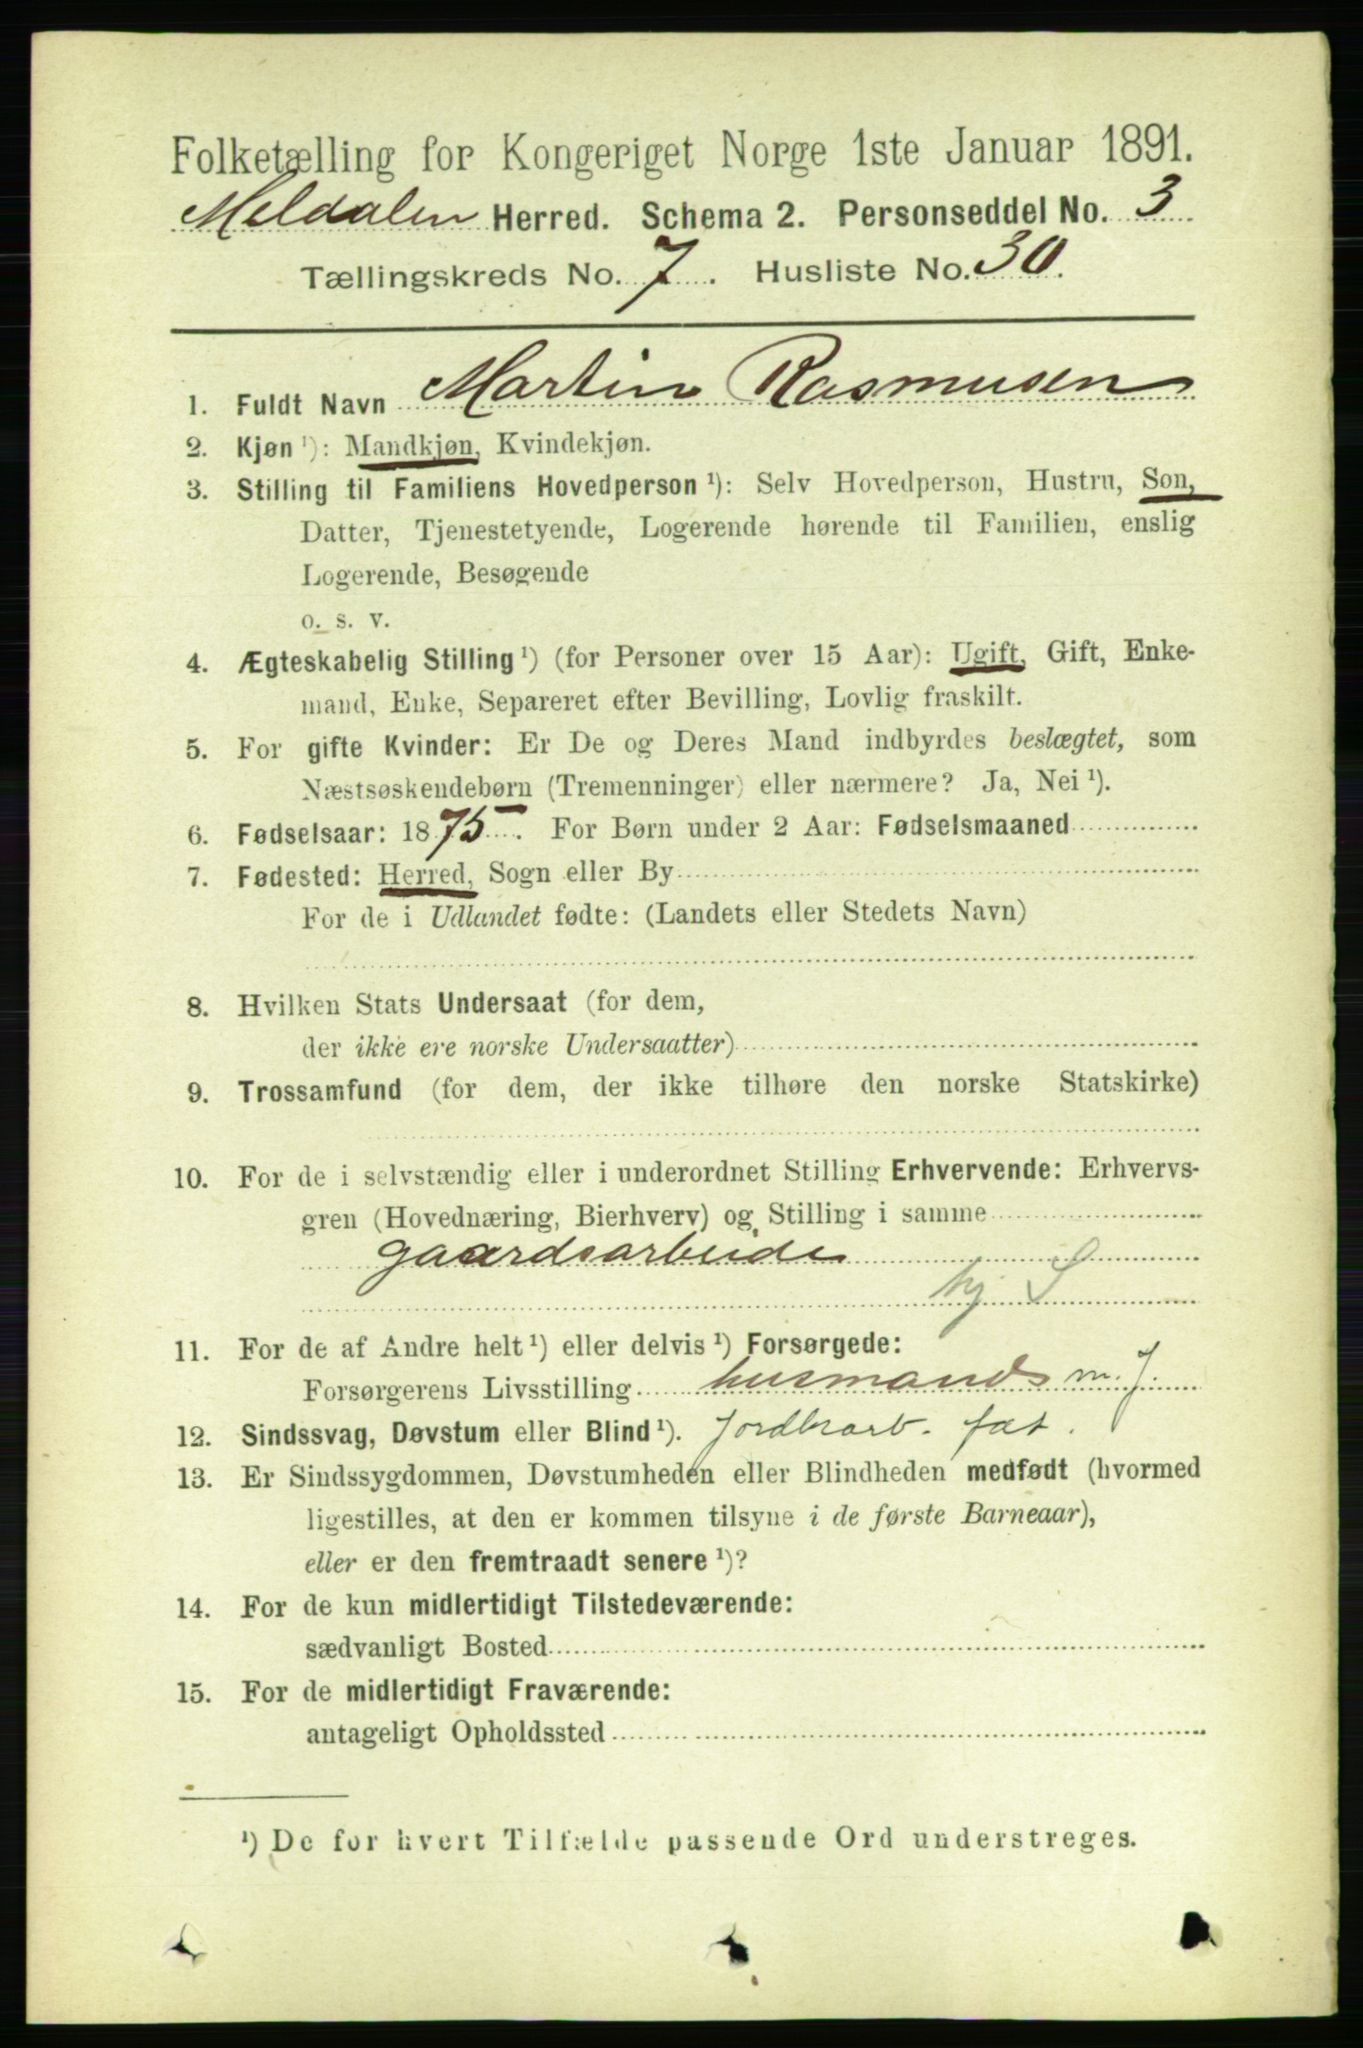 Folketælling for Kongeriget Norge 1ste Januar 1891.
Meldalen Herred. Schema 2. Personseddel No. 3
Tællingskreds No. 7. Husliste No. 30.
1. Fuldt Navn Martin Rasmusen
2. Kjøn ¹): Mandkjøn, Kvindekjøn.
3. Stilling til Familiens Hovedperson ¹): Selv Hovedperson, Hustru, Søn,
Datter, Tjenestetyende, Logerende hørende til Familien, enslig
Logerende, Besøgende
o. s. v.
4. Ægteskabelig Stilling ¹) (for Personer over 15 Aar): Ugift, Gift, Enke-
mand, Enke, Separeret efter Bevilling, Lovlig fraskilt.
5. For gifte Kvinder: Er De og Deres Mand indbyrdes beslægtet, som
Næstsøskendebørn (Tremenninger) eller nærmere? Ja, Nei ¹).
6. Fødselsaar: 1875. For Børn under 2 Aar: Fødselsmaaned
7. Fødested: Herred, Sogn eller By
For de i Udlandet fødte: (Landets eller Stedets Navn)
8. Hvilken Stats Undersaat (for dem,
der ikke ere norske Undersaatter)
9. Trossamfund (for dem, der ikke tilhøre den norske Statskirke)
10. For de i selvstændig eller i underordnet Stilling Erhvervende: Erhvervs-
gren (Hovednæring, Bierhverv) og Stilling i samme
gaardsarbeide
hj S
11. For de af Andre helt ¹) eller delvis ¹) Forsørgede:
Forsørgerens Livsstilling husmands m. J.
12. Sindssvag, Døvstum eller Blind ¹). Jordbrarb. fat.
13. Er Sindssygdommen, Døvstumheden eller Blindheden medfødt (hvormed
ligestilles, at den er kommen tilsyne i de første Barneaar),
eller er den fremtraadt senere ¹)?
14. For de kun midlertidigt Tilstedeværende:
sædvanligt Bosted
15. For de midlertidigt Fraværende:
antageligt Opholdssted
¹) De for hvert Tilfælde passende Ord understreges.